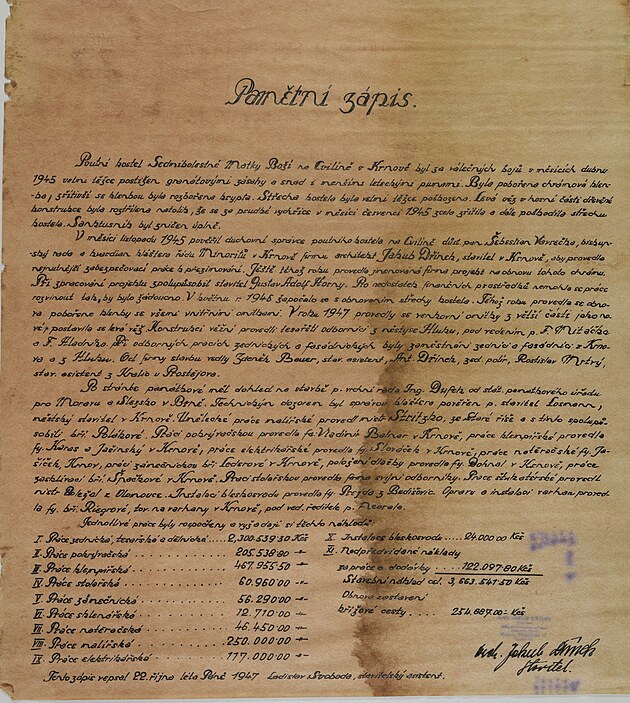 Pamětní zápis.
Poutní kostel Sedmibolestné Matky Boží na Cvilíně v Krnově byl za válečných bojů v měsících dubnu
1945 velmi těžce postižen granátovými zásahy a snad i menšími leteckými pumami. Byla pobořena chrámová klen-
ba, zřítivší se klenbou byla rozbořena krypta. Střecha kostela byla velmi těžce poškozena. Levá věž v horní části dřevěné
konstrukce byla roztříštěna natolik, že se za prudké vichřice v měsíci červenci 1945 zcela zřítila a dále poškodila střechu
kostela. Sanktusník byl zničen úplně.
V měsíci listopadu 1945 pověřil duchovní správce poutního kostela na Cvilíně důst. pan Šebestian biskup-
ský rada a kvardian kláštera řádu Minoritů v Krnově firmu architekt Jakub Dřínek, stavitel v Krnově, aby provedla
nejnutnější zabezpečovací práce k přezimování. Ještě téhož roku provedla jmenovaná firma projekt na obnovu tohoto chrámu.
Při zpracování projektu spolupůsobil stavitel Gustav Adolf Horny. Pro nedostatek finančních prostředků nemohla se práce
rozvinout tak, by bylo žádoucno. V květnu r. 1946 započalo se s obnovením střechy kostela. Téhož roku provedla se obno-
va pobořené klenby se všemi vnitřními omítkami. V roku 1947 provedly se venkovní omítky z větší části jakona-
vé, postavila se levá věž. Konstrukci věžní provedli tesařští odborníci z městyse Hluku, pod vedením p. F. Mitáčka
a F. Hladníka. Při odborných pracích zednických a fasádnických byli zaměstnáni zedníci a fasádníci z Krno-
va a z Hluku. Od firmy stavbu vedly Zdeněk Bauer, stav. asistent, Ant. Dřínek, zed. polír, Rostislav Mokrý,
stav. asistent z Kralic u Prostějova.
Po stránce památkové měl dohled na stavbě p. vrchní rada Ing. Dufek od stát. památkového úřadu
pro Moravu a Slezsko v Brně. Technickým dozorem byl správou kláštera pověřen p. stavitel Losmann,
městský stavitel v Krnově. Umělecké práce malířské provedl mistr Stritzko, ze Staré říše a s tímto spolupů-
sobili bří. Polákové. Práci pokrývačskou provedla fa. Vladimír v Krnově, práce klempířské provedla
fy. Karas a Jasinský v Krnově, práce elektrikářské provedla fy. Slováček v Krnově, práce natěračské fy. Ja-
šíček, Krnov, práci zámečnickou bří. Lederer v Krnově, položení dlažby provedla fy. Dohnal v Krnově, práce
zasklívací bří. Špačkové v Krnově. Práci stolařskou provedla firma svými odborníky. Práce štukatérské provedl
mistr z Olomouce. Instalaci bleskosvodu provedla fy. z Opravu a instalaci varhan proved-
la fy. bří. Riegrové, tov. na varhany v Krnově, pod ved. ředitele p.
Jednotlivé práce byly rozpočteny a vyžádají si těchto nákladů:
I Práce zednické, tesařské a dělnické.....2,300.539.30 Kčs
II Práce pokrývačské ............ 205.538.90 -"-
III Práce klempířské ............ 467.955.50 -"-
IV Práce stolařské ............ 60.960.00 -"-
V Práce zámečnické ............ 56.290.00 -"-
VI Práce sklenářské ............ 12.710.00 -"-
VII Práce natěračské ............ 46.450.00 -"-
VIII Práce malířské ............ 250.000.00 -"-
IX Práce elektrikářské ............ 117.000.00 -"-
X Instalace bleskosvodu .... 24.000.00 Kčs
XI Nepředvídané náklady
za práce a dodávky ..... 122.097.80 Kčs
Stavební náklad cel. 3,663.541.50 Kčs
Obnova zastavení
křížové cesty ..... 254.687.00 Kčs
Tento zápis vepsal 22. října léta Páně 1947 Ladislav Svoboda, stavitelský asistent.
arch. Jakub Dřínek
stavitel.